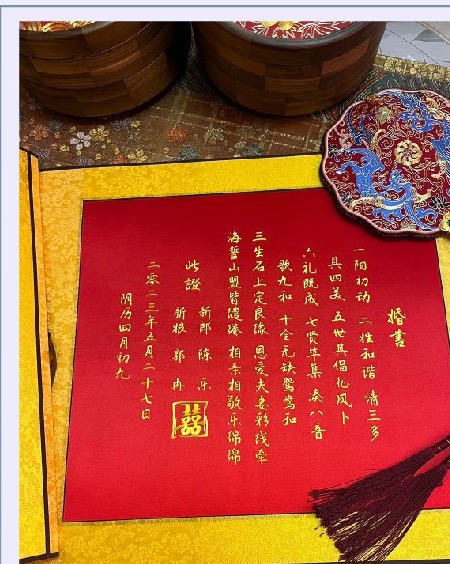 婚書
一阳初动 二姓和谐 请三多
具四美 五世其倡 凤卜
六礼既成 七贤毕集 凑八音
歌九和 十全无缺鸳鸯和
三生石上定良缘 恩爱夫妻彩线牵
海誓山盟皆缱绻 相亲相敬乐绵绵
此證
新郎 陈乐
新娘 郭冉
囍
二零二三年五月二十七日
阴历四月初九